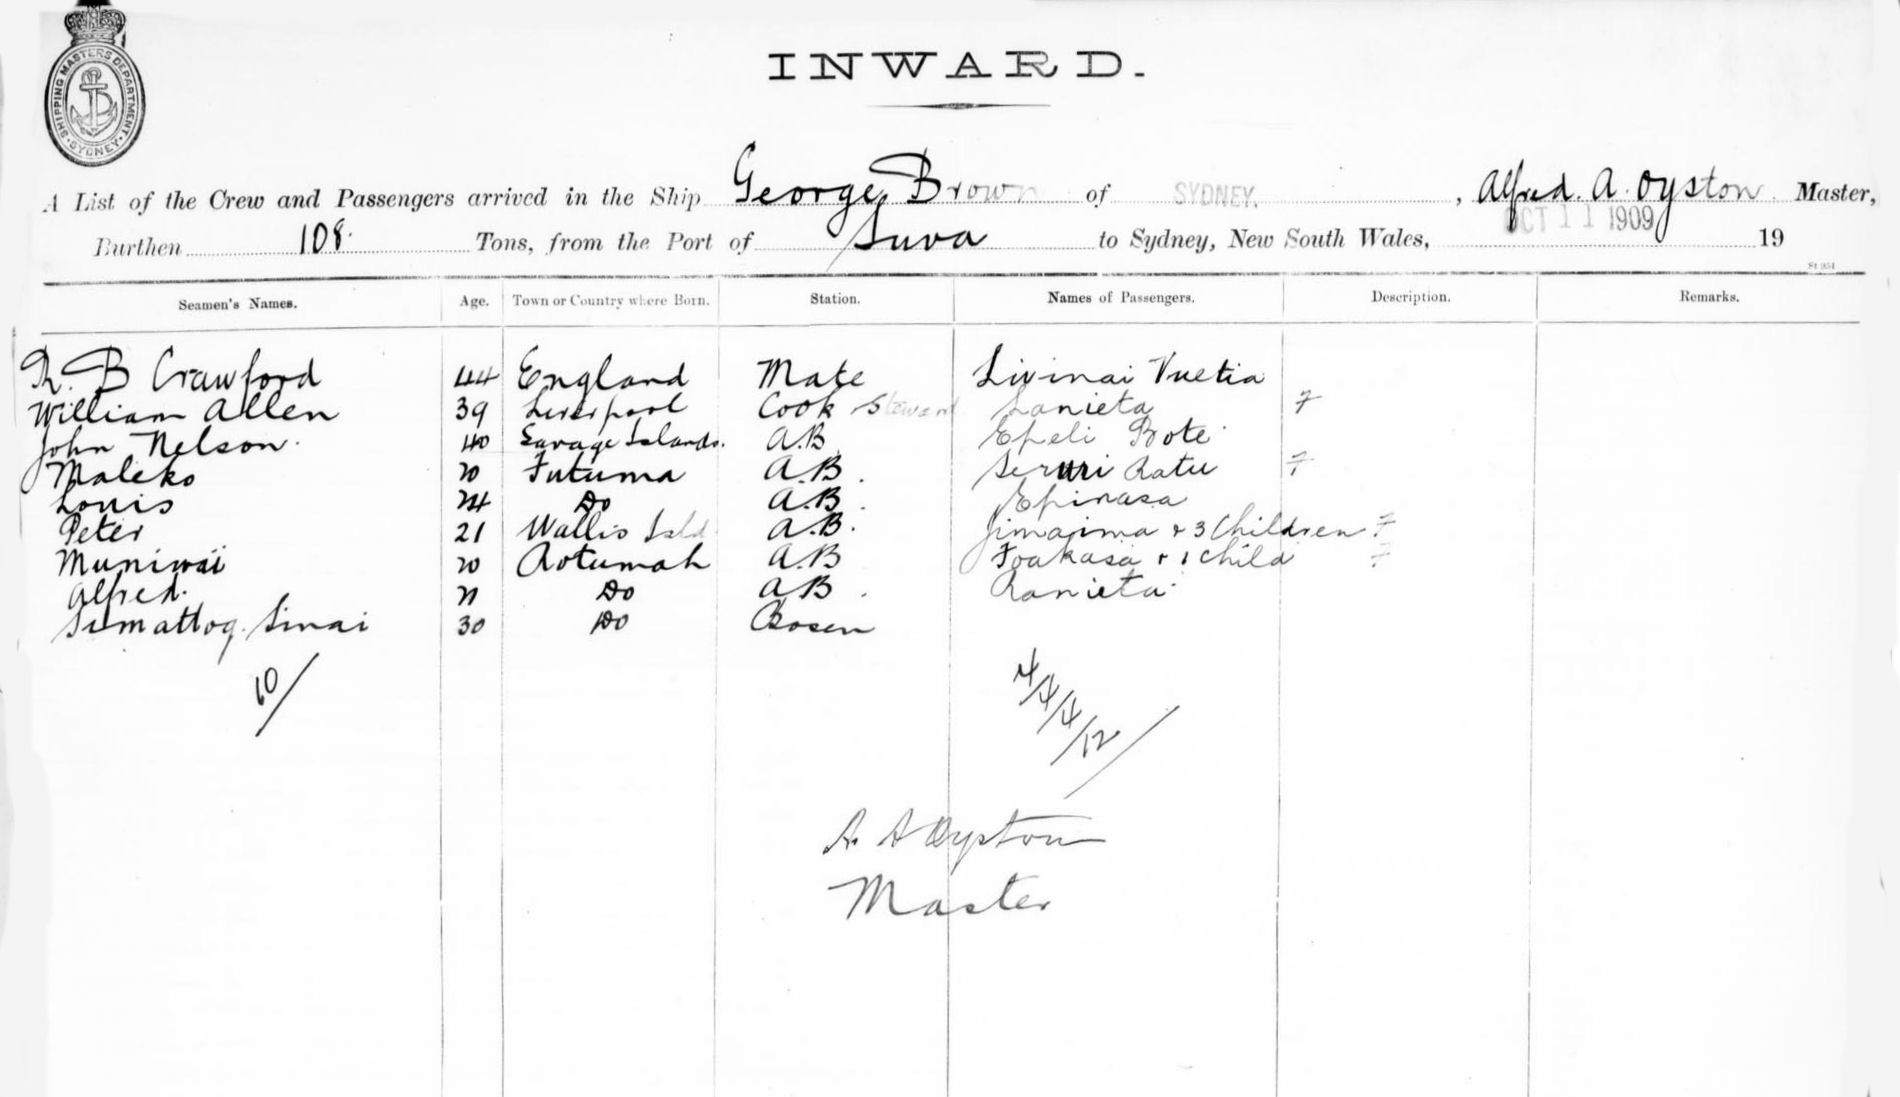 SHIPPING MASTERS DEPARTMENT. SYDNEY.
INWARD.
A List of the Crew and Passengers arrived in the Ship George Brown of SYDNEY. , Alfred. A. Oyston Master,
Burthen 108. Tons, from the Port of Suva to Sydney, New South Wales, OCT 11 1909 19
St 951
Seamen's Names. Age. Town or Country where Born. Station. Names of Passengers. Description. Remarks.
B Crawford 44 England Mate Livinai Vuetia
William Allen 39 Liverpool Cook Steward Lanieta F
John Nelson. 40 Savage Islands. A.B. Epeli Bote
Maleko 20 Futuma A.B. Ratu F
Louis 24 Do A.B. Epinasa
Peter 21 Wallis Isld A.B. Jimaima & 3 Children F
Muniwai 20 Rotumah A.B Foakasa & 1 Child F
Alfred. 21 Do A.B. Ranieta
Sinai 30 Do Bosen
10/
4/4/4/12/
A. A Oyston
Master